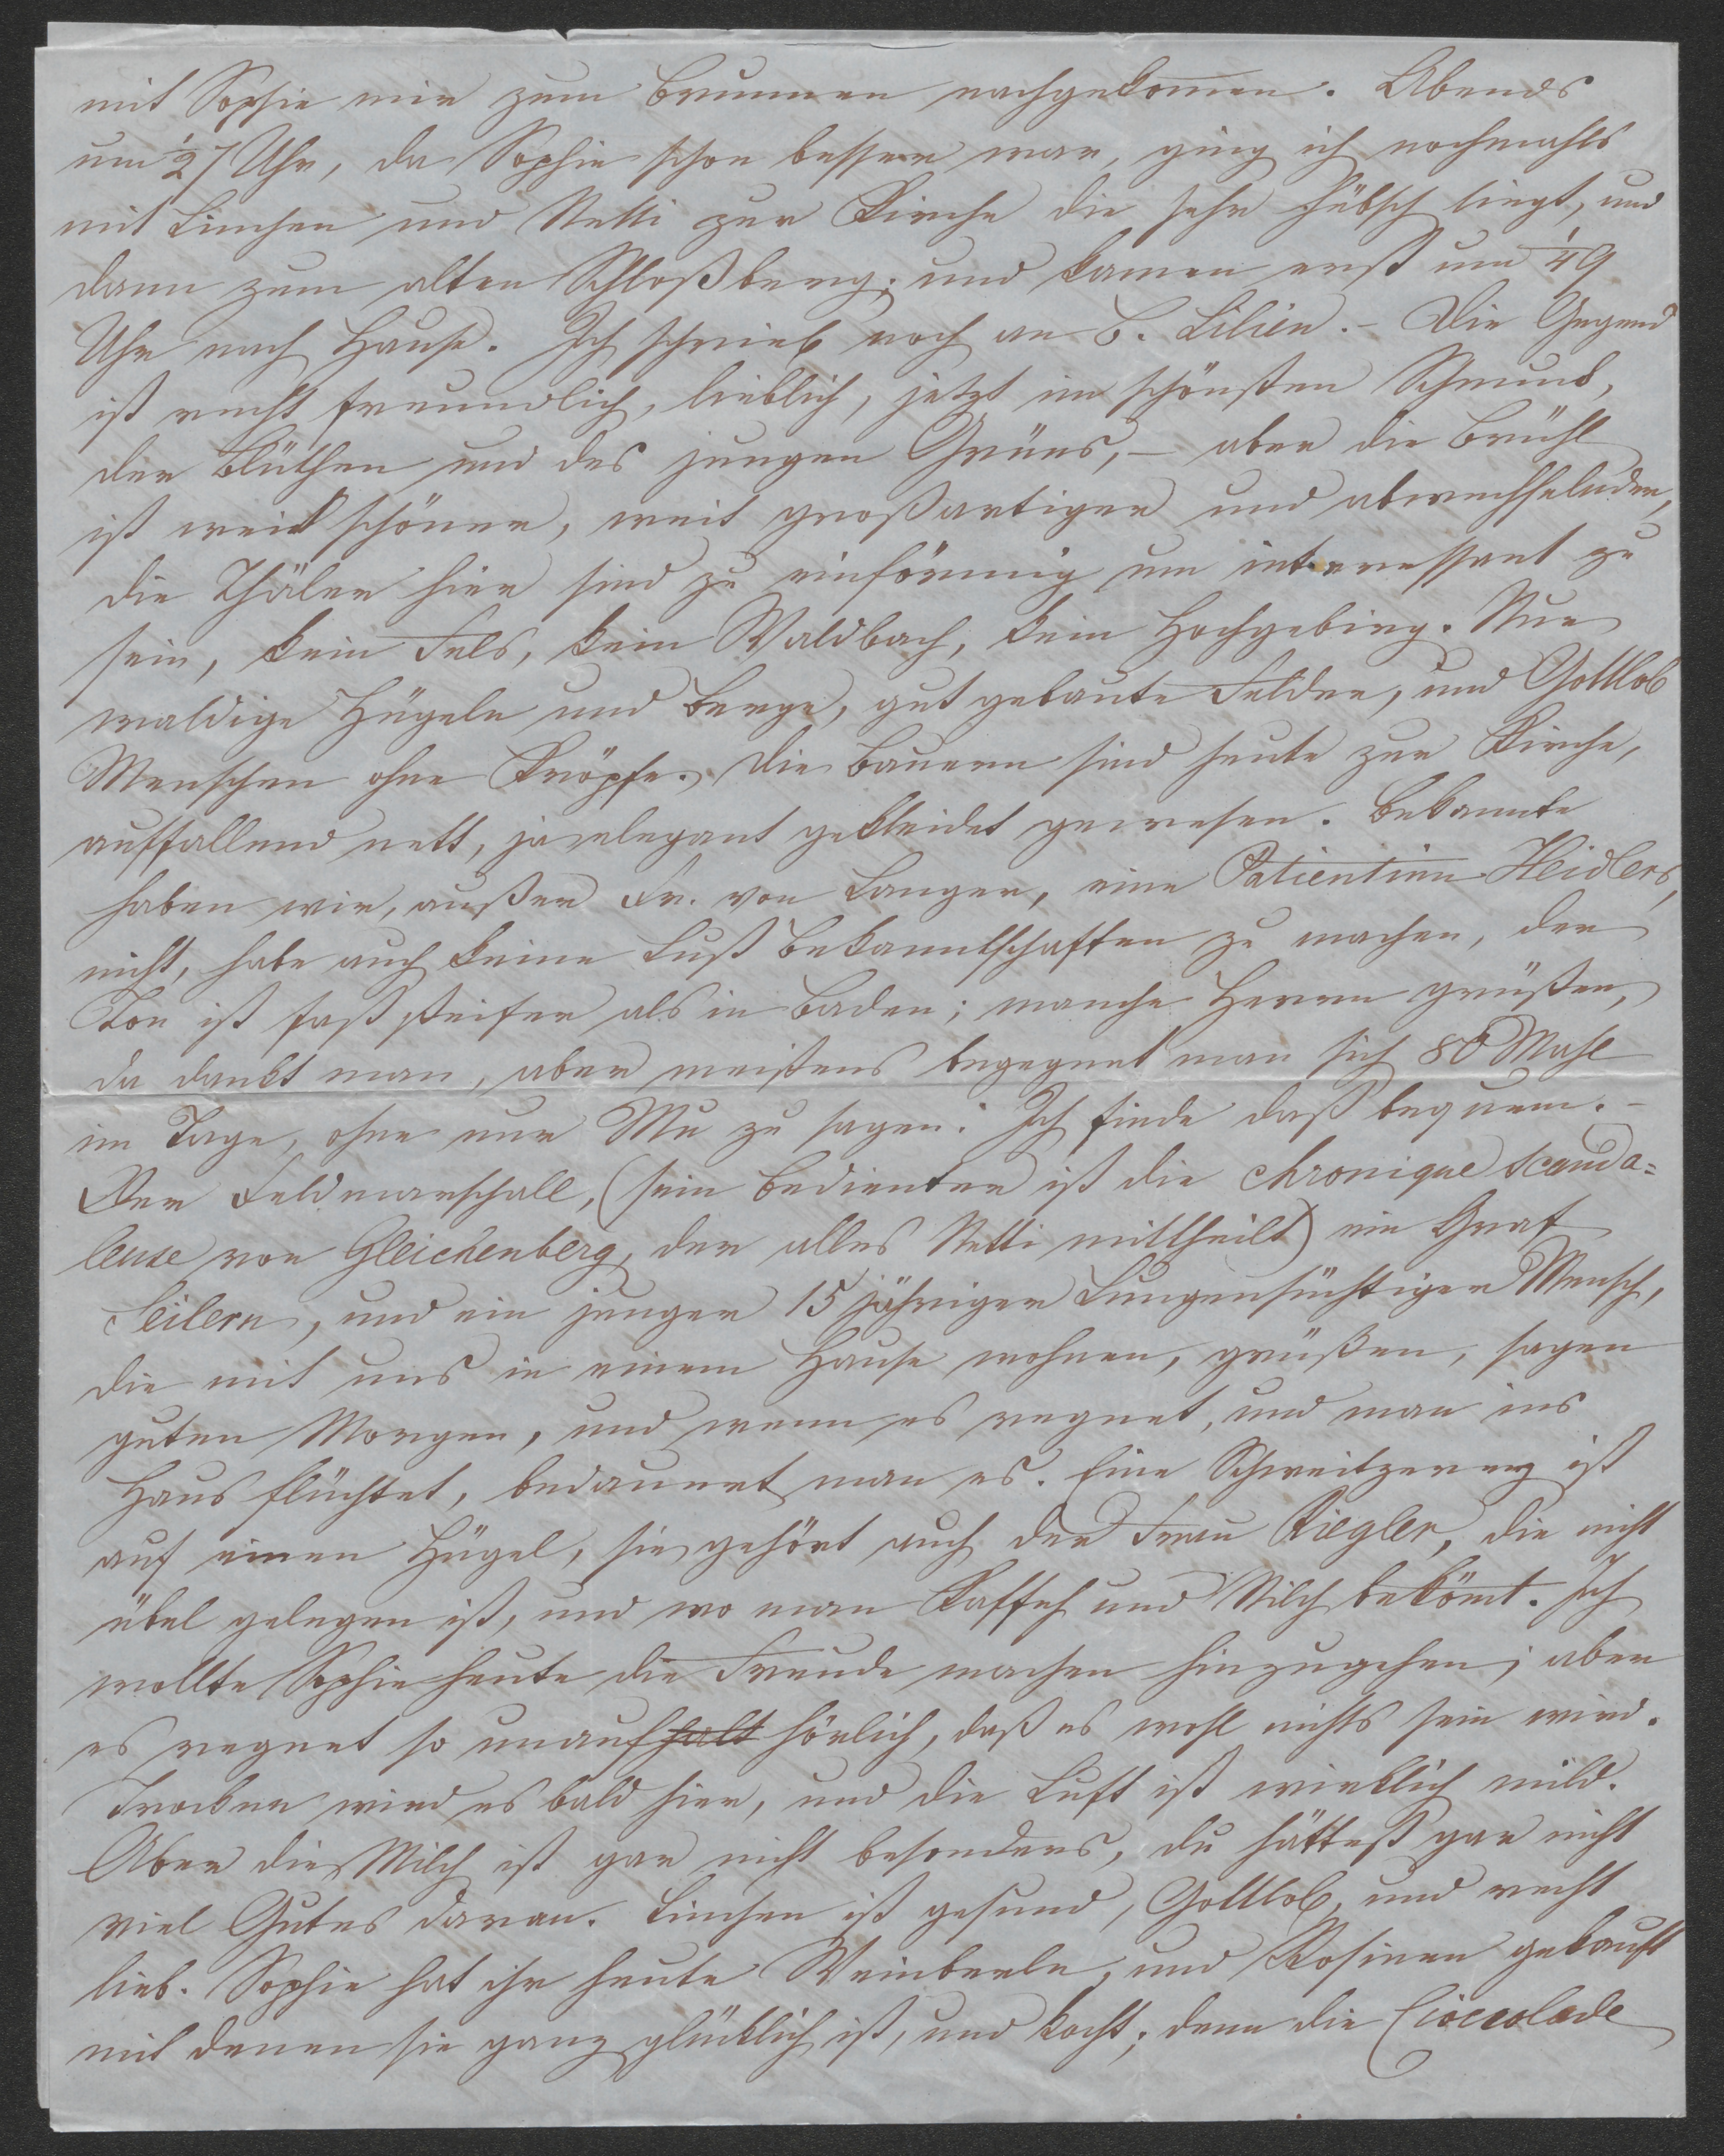 mit Sophie mir zum Brunnen nachgekom̅en. Abends
um ½7 Uhr, da Sophie schon besser war, ging ich nochmahls
mit Linchen und Netti zur Kirche die sehr hübsch liegt, und
dann zum alten Schloßberg; und kamen erst um ¼9
Uhr nach Hause. Ich schrieb noch an B. Lilien. – Die Gegend
ist recht freundlich, lieblich, jetzt im schönsten Schmuck,
der Blüthen und des jungen Grüns, – aber die Brühl
ist weit schöner, weit großartiger und abwechselnder,
die Thäler hier sind zu einförmig um interessant zu
sein, kein Fels, kein Waldbach, kein Hochgebirg. Nur
waldige Hügeln und Berge, gut gebaute Felder, und Gottlob
Menschen ohne Kröpfe. Die Bauern sind heute zur Kirche,
auffallend nett, ja elegant gekleidet gewesen. Bekannte
haben wir, außer Fr. von Langer, eine Patientinn Heidlers,
nicht, habe auch keine Lust Bekanntschaften zu machen, der
Ton ist fast steifer als in Baden; manche Herrn grüßen,
da dankt man, aber meistens begegnet man sich 80 Mahl
im Tage, ohne nur Mu zu sagen. Ich finde daß bequem. –
Der Feldmarschall, (sein Bedienter ist die chronique scanda=
leuse von Gleichenberg, der alles Netti mittheilt) ein Graf
Seilern, und ein junger 15 jähriger Lungensüchtiger Mensch,
die mit uns in einem Hause wohnen, grüßen, sagen
guten Morgen, und wenn es regnet, und man ins
Haus flüchtet, bedauert man es. Eine Schweitzerey ist
auf einen Hügel, sie gehört auch der Frau Riegler, die nicht
übel gelegen ist, und wo man Kaffeh und Milch beköm̅t. Ich
wollte Sophie heute die Freude machen hinzugehen; aber
es regnet so unaufhalt hörlich, daß es wohl nichts sein wird.
Trocken wird es bald hier, und die Luft ist wirklich mild.
Aber die Milch ist gar nicht besonders, du hättest gar nicht
viel Gutes daran. Linchen ist gesund, Gottlob, und recht
lieb. Sophie hat ihr heute Weinbeerln, und Rosinen gekauft
mit denen sie ganz glücklich ist, und kocht; denn die Cioccolade